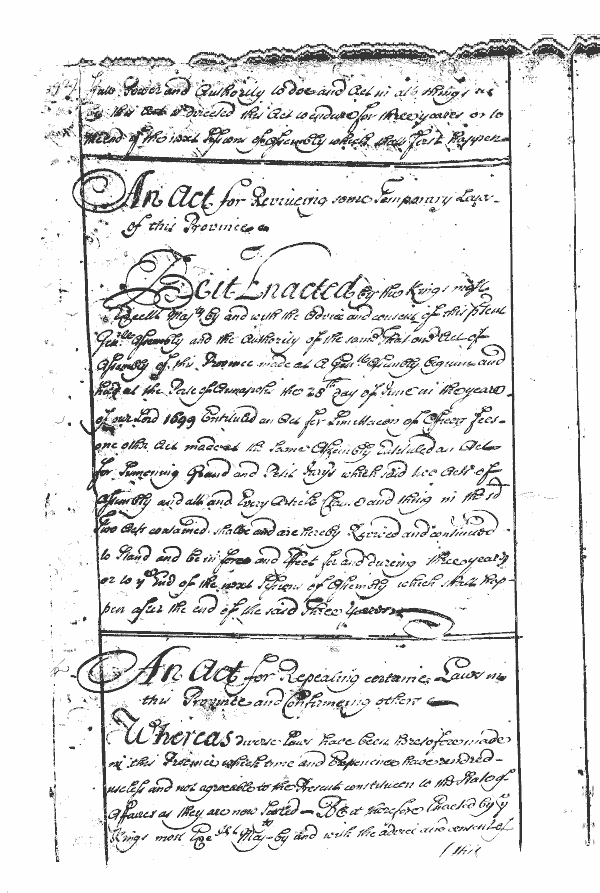 full Power and Authority to doe and Act in all things as
by this Act is directed this Act to endure for three yeares or to
the end of the next Sessions of Assembly which shall first happen
An Act for Reviveing some Temporary Laws
of this Province
Beit Enacted by the Kings most
Excellt Majty by and with the advice and consent of this present
Genll Assembly and the Authority of the same That one Act of
Assembly of this Province made at A Genll Assembly begunn and
held at the Port of Annapolis the 28th day of June in the yeare
of our Lord 1699 Entituled an Act for Limittacon of Officers Fees
one other Act made at the same Assembly Entituled an Act
for Sumoning Grand and Petit Jurys which said two Acts of
Assembly and all and Every Article Clause and thing in the sd
two Acts contained shalbe and are hereby Revived and continued
to stand and be in force and Effect for and dureing three years
or to ye End of the next Sessions of Assembly which shall hap
pen after the end of the said three yeares
An Act for Repealing certaine Laws in
this Province and Confirmeing others
Whereas diverse Laws have been heretofore made
in this Province which time and Experience have rendred
useless and not agreeable to the Present constitucon to the State of
Affaires as they are now Setled Be it therefore Enacted by ye
Kings most Excellt Majty by and with the advice and consent of
this